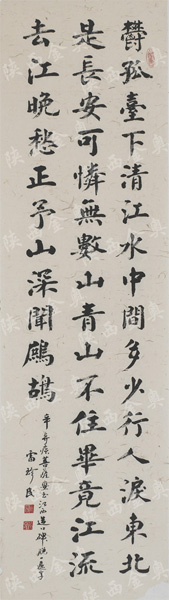 鬱孤臺下清江水中間多少行人淚東北
是長安可憐無數山青山不住畢竟江流
去江晚愁正予山深聞鷓鴣
辛弃疾菩薩蠻書江西造口
雷珍民